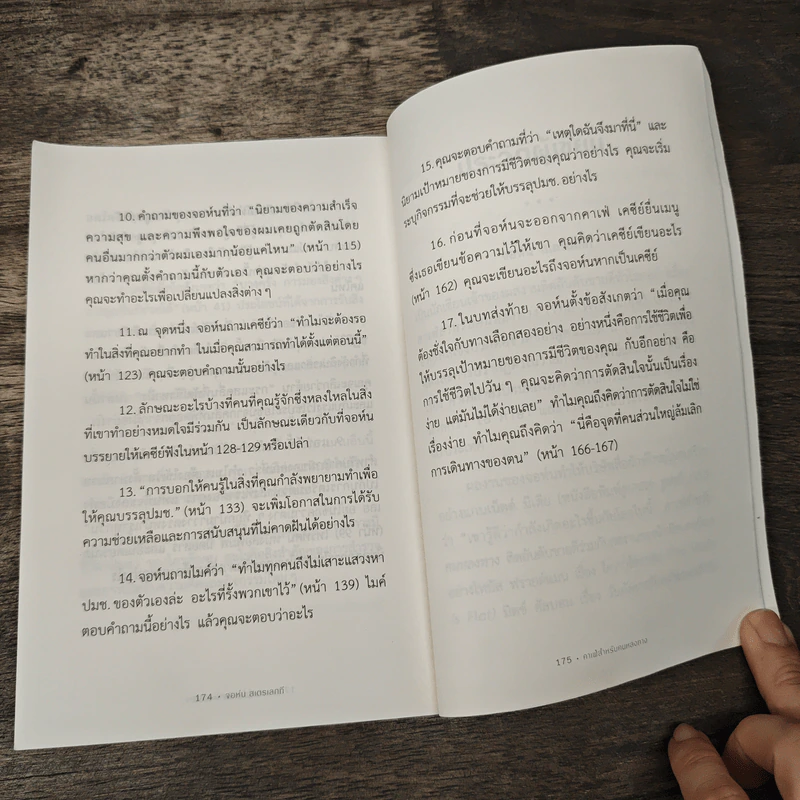 10. คำถามของจอห์นที่ว่า “นิยามของความสำเร็จ
ความสุข และความพึงพอใจของผมเคยถูกตัดสินโดย
คนอื่นมากกว่าตัวผมเองมากน้อยแค่ไหน” (หน้า 115)
หากว่าคุณตั้งคำถามนี้กับตัวเอง คุณจะตอบว่าอย่างไร
คุณจะทำอะไรเพื่อเปลี่ยนแปลงสิ่งต่าง ๆ
11. ณ จุดหนึ่ง จอห์นถามเคซีย์ว่า “ทำไมจะต้องรอ
ทำในสิ่งที่คุณอยากทำ ในเมื่อคุณสามารถทำได้ตั้งแต่ตอนนี้”
(หน้า 123) คุณจะตอบคำถามนั้นอย่างไร
12. ลักษณะอะไรบ้างที่คนที่คุณรู้จักซึ่งหลงใหลในสิ่ง
ที่เขาทำอย่างหมดใจมีร่วมกัน เป็นลักษณะเดียวกับที่จอห์น
บรรยายให้เคซีย์ฟังในหน้า 128-129 หรือเปล่า
13. “การบอกให้คนรู้ในสิ่งที่คุณกำลังพยายามทำเพื่อ
ให้คุณบรรลุปมช.” (หน้า 133) จะเพิ่มโอกาสในการได้รับ
ความช่วยเหลือและการสนับสนุนที่ไม่คาดฝันได้อย่างไร
14. จอห์นถามไมค์ว่า “ทำไมทุกคนถึงไม่เสาะแสวงหา
ปมช. ของตัวเองล่ะ อะไรที่รั้งพวกเขาไว้” (หน้า 139) ไมค์
ตอบคำถามนี้อย่างไร แล้วคุณจะตอบว่าอะไร
174 • จอห์น สเตรเลกกี
15. คุณจะตอบคำถามที่ว่า “เหตุใดฉันจึงมาที่นี่” และ
นิยามเป้าหมายของการมีชีวิตของคุณว่าอย่างไร คุณจะเริ่ม
ระบุกิจกรรมที่จะช่วยให้บรรลุปมช. อย่างไร
16. ก่อนที่จอห์นจะออกจากคาเฟ่ เคซีย์ยื่นเมนู
ซึ่งเธอเขียนข้อความไว้ให้เขา คุณคิดว่าเคซีย์เขียนอะไร
(หน้า 162) คุณจะเขียนอะไรถึงจอห์นหากเป็นเคซีย์
17. ในบทส่งท้าย จอห์นตั้งข้อสังเกตว่า “เมื่อคุณ
ต้องชั่งใจกับทางเลือกสองอย่าง อย่างหนึ่งคือการใช้ชีวิตเพื่อ
ให้บรรลุเป้าหมายของการมีชีวิตของคุณ กับอีกอย่าง คือ
การใช้ชีวิตไปวัน ๆ คุณจะคิดว่าการตัดสินใจนั้นเป็นเรื่อง
ง่าย แต่มันไม่ได้ง่ายเลย” ทำไมคุณถึงคิดว่าการตัดสินใจไม่ใช่
เรื่องง่าย ทำไมคุณถึงคิดว่า “นี่คือจุดที่คนส่วนใหญ่ล้มเลิก
การเดินทางของตน” (หน้า 166-167)
175 • คาเฟ่สำหรับคนหลงทาง